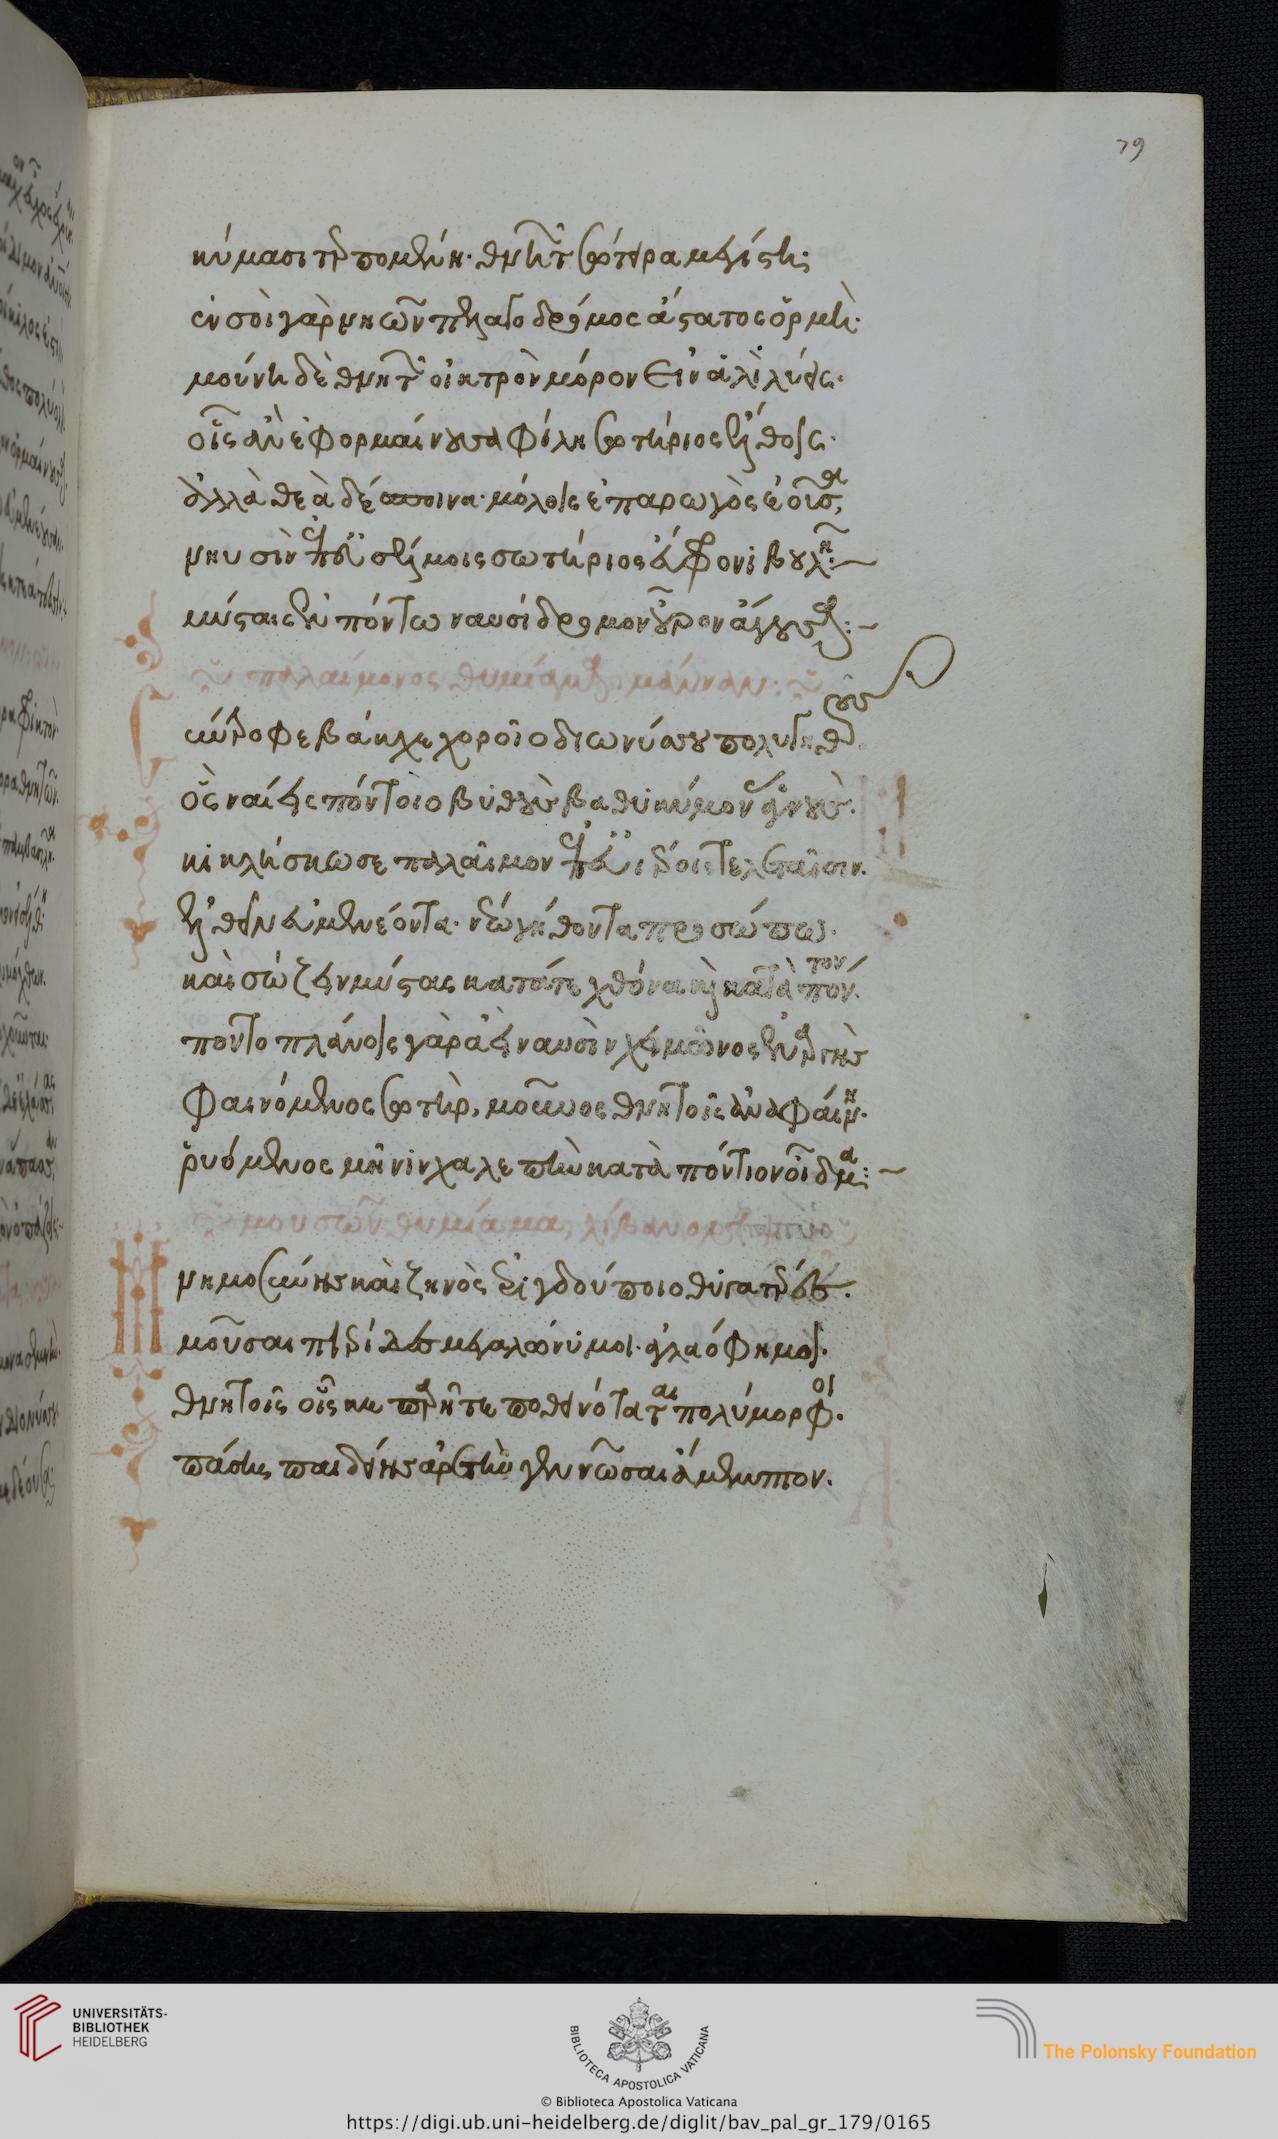 79
κύμασι τερπομένη· θνητῶν σώτειρα μεγίστη·
ἐν σοὶ γὰρ νηῶν πελαγοδρόμος ἄστατος ὁρμὴ·
μούνη δὲ θνητῶν οἰκτρὸν μόρον εἰν ἁλὶ λύεις·
οἷς ἂν ἐφορμαίνουσα φίλη σωτήριος ἔλθοις·
ἀλλὰ θεὰ δέσποινα· μόλοις ἐπαρωγὸς ἐοῦσα,
νηυσὶν ἐπ' εὐσέλμοις σωτήριος εὔφρονι βουλῇ:
μύσταις ἐν πόντω ναυσίδρομον οὖρον ἄγουσα:
παλαίμονος θυμίαμα μάνναν:
σύντροφε βάκχε χοροῖο διωνύσου πολυγηθοῦς
ὃς ναίεις πόντοιο βυθοὺς βαθυκύμονας ἁγνοὺς·
κικλήσκω σε παλαῖμον ἐπ' εὐϊέροις τελεταῖσιν·
ἐλθεῖν εὐμενέοντα· νέω γήθοντα προσώπω·
καὶ σώζειν μύστας κατά τε χθόνα καὶ κατὰ πόντον·
ποντοπλάνοις γὰρ ἀεὶ ναυσὶν χειμῶνος ἐναργὴς
φαινόμενος σωτὴρ, μοῦνος θνητοῖς ἀναφαίνη·
ῥυόμενος μῆνιν χαλεπὴν κατὰ πόντιον οἶδμα:
μουσῶν θυμίαμα, λίβανον
μνημοσύνης καὶ ζηνὸς ἐριγδούποιο θύγατρες·
μοῦσαι πιερίδες μεγαλώνυμοι· ἀγλαόφημοι·
θνητοῖς οἷς κε παρῆτε ποθεινόταται πολύμορφοι·
πάσης παιδείης ἀρετὴν γεννῶσαι ἄμεμπτον·
UNIVERSITÄTS-
BIBLIOTHEK
HEIDELBERG
BIBLIOTECA APOSTOLICA VATICANA
© Biblioteca Apostolica Vaticana
The Polonsky Foundation
https://digi.ub.uni-heidelberg.de/diglit/bav_pal_gr_179/0165